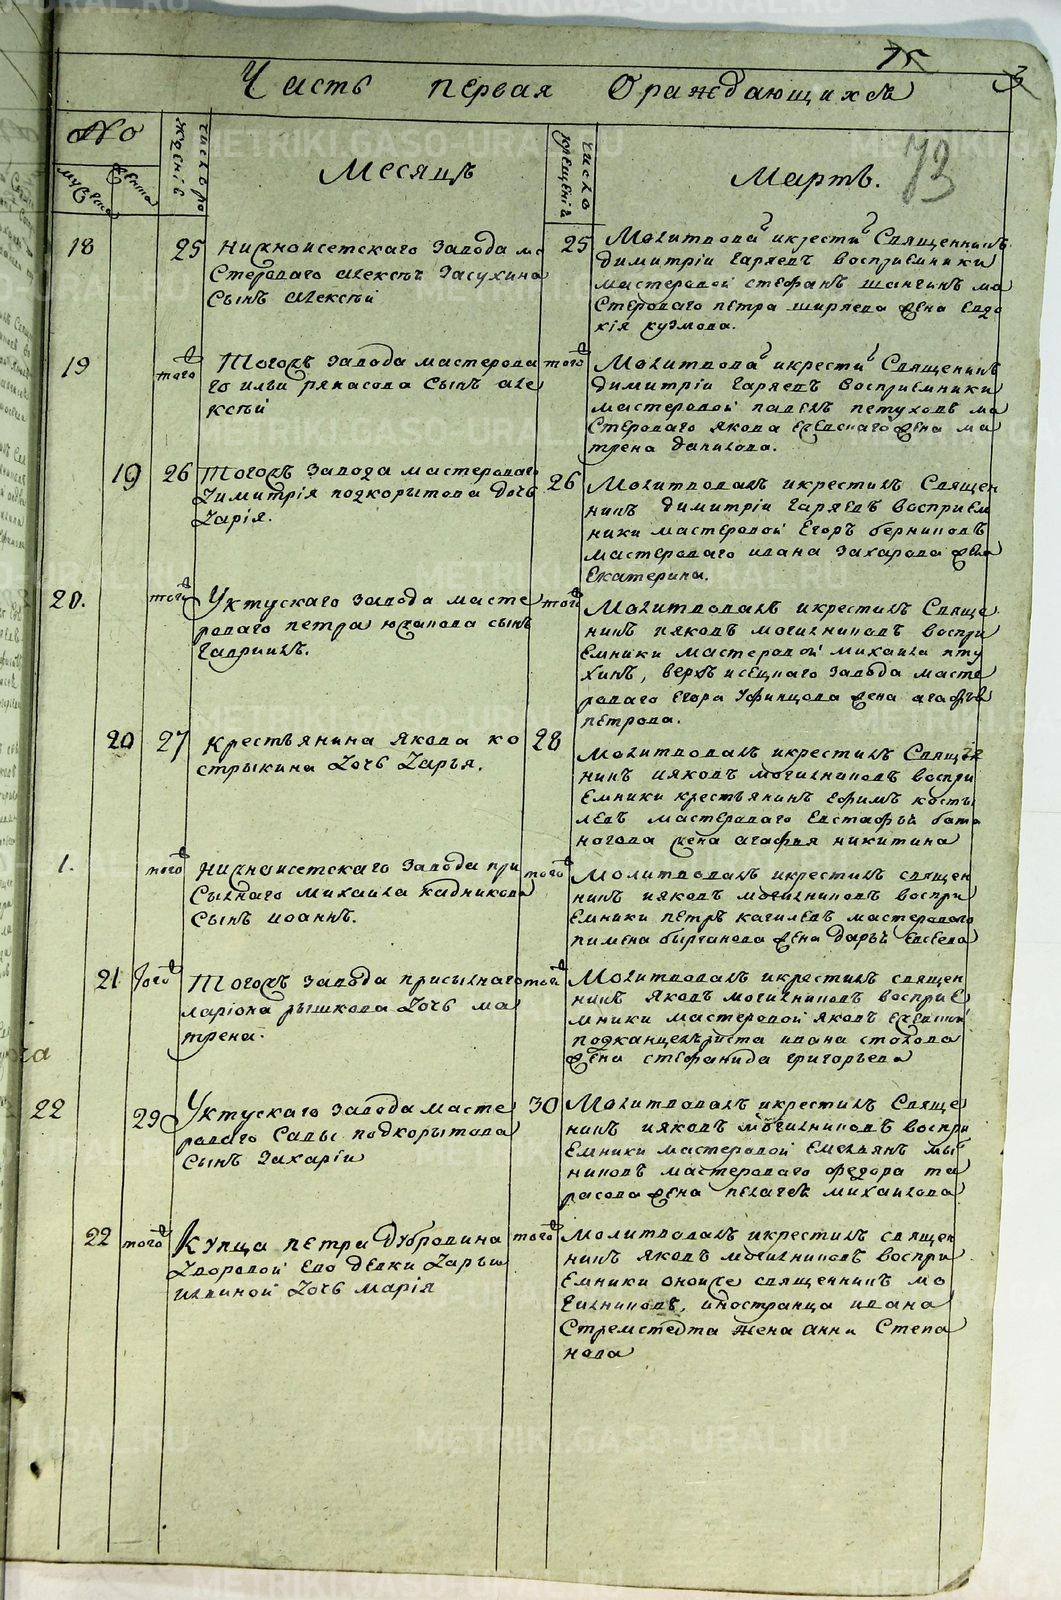 75
3
Часть первая Ораждающихся
No
мужеска
женска
число рождений
Месяцъ
число крещений
Мартъ.
73
18
25
Нижноисетскаго завода ма
стероваго Алексѣя Засухина
Сынъ Алексѣй
25
Молитвовал и крестил Священникъ
димитрiи Гаряевъ восприемники
мастеровой стефанъ шангинъ ма
стероваго петра ширяева жена Евдо
кiя кузмова.
19
того ж
Тогожъ завода мастерова
го ильи Сынъ Але
ксѣй
того ж
Молитвовал и крестил Священикъ
димитрiи Гаряевъ восприемники
мастеровой павелъ петуховъ ма
стероваго якова жена ма
трена данилова.
19
26
Тогожъ завода мастероваго
Димитрiя подкорытова дочь
Дарiя.
26
Молитвовалъ и крестилъ Священ
никъ димитрiи Гаряевъ восприем
ники мастеровой Егоръ берниковъ
мастероваго ивана захарова жена
Екатерина.
20.
того ж
Уктускаго завода масте
роваго петра юсупова сынъ
Гаврiилъ.
того ж
Молитвовалъ и крестилъ Свяще
никъ иаковъ могилниковъ воспри
емники мастеровой михаила пту
хинъ, верхъ исецкаго завода масте
роваго Егора Уфинцова жена агафья
петрова.
20
27
Крестьянина якова ко
стрыкина дочь Дарья.
28
Молитвовалъ и крестилъ Священ
никъ иаковъ могилниковъ воспри
емники крестьянинъ Ефимъ косты
левъ мастероваго Евстафья бата
ногова жена агафья никитина
1.
того ж
Нижноисетскаго завода при
сылнаго Михаила Кадникова
Сынъ иоаннъ.
того ж
Молитвовалъ и крестилъ священ
никъ иаковъ могилниковъ воспри
емники петръ кагилевъ мастероваго
пимена быргакова жена Дарья Евсеева
21
того ж
Тогожъ завода присылнаго
ларiона рышкова дочь ма
трена.
того ж
Молитвовалъ и крестилъ священ
никъ яковъ могилниковъ восприе
мники мастеровой яковъ
подканцеляриста ивана стахова
жена стефанида григорьева
22
29
Уктускаго завода масте
роваго Савы подкорытова
Сынъ Захарiи
30
Молитвовалъ и крестилъ Свяще
никъ иаковъ могилниковъ воспри
емники мастеровой Емельянъ мы
никовъ мастероваго федора та
расова жена пелагея михаилова
22
того ж
Купца петра Дубровина
Дворовой его девки Дарьи
ильиной дочь Марiя
того ж
Молитвовалъ и крестилъ священ
никъ яковъ могилниковъ воспри
емники оной же священникъ мо
гилниковъ, иностранца ивана
Стремстедта жена анна Степа
нова